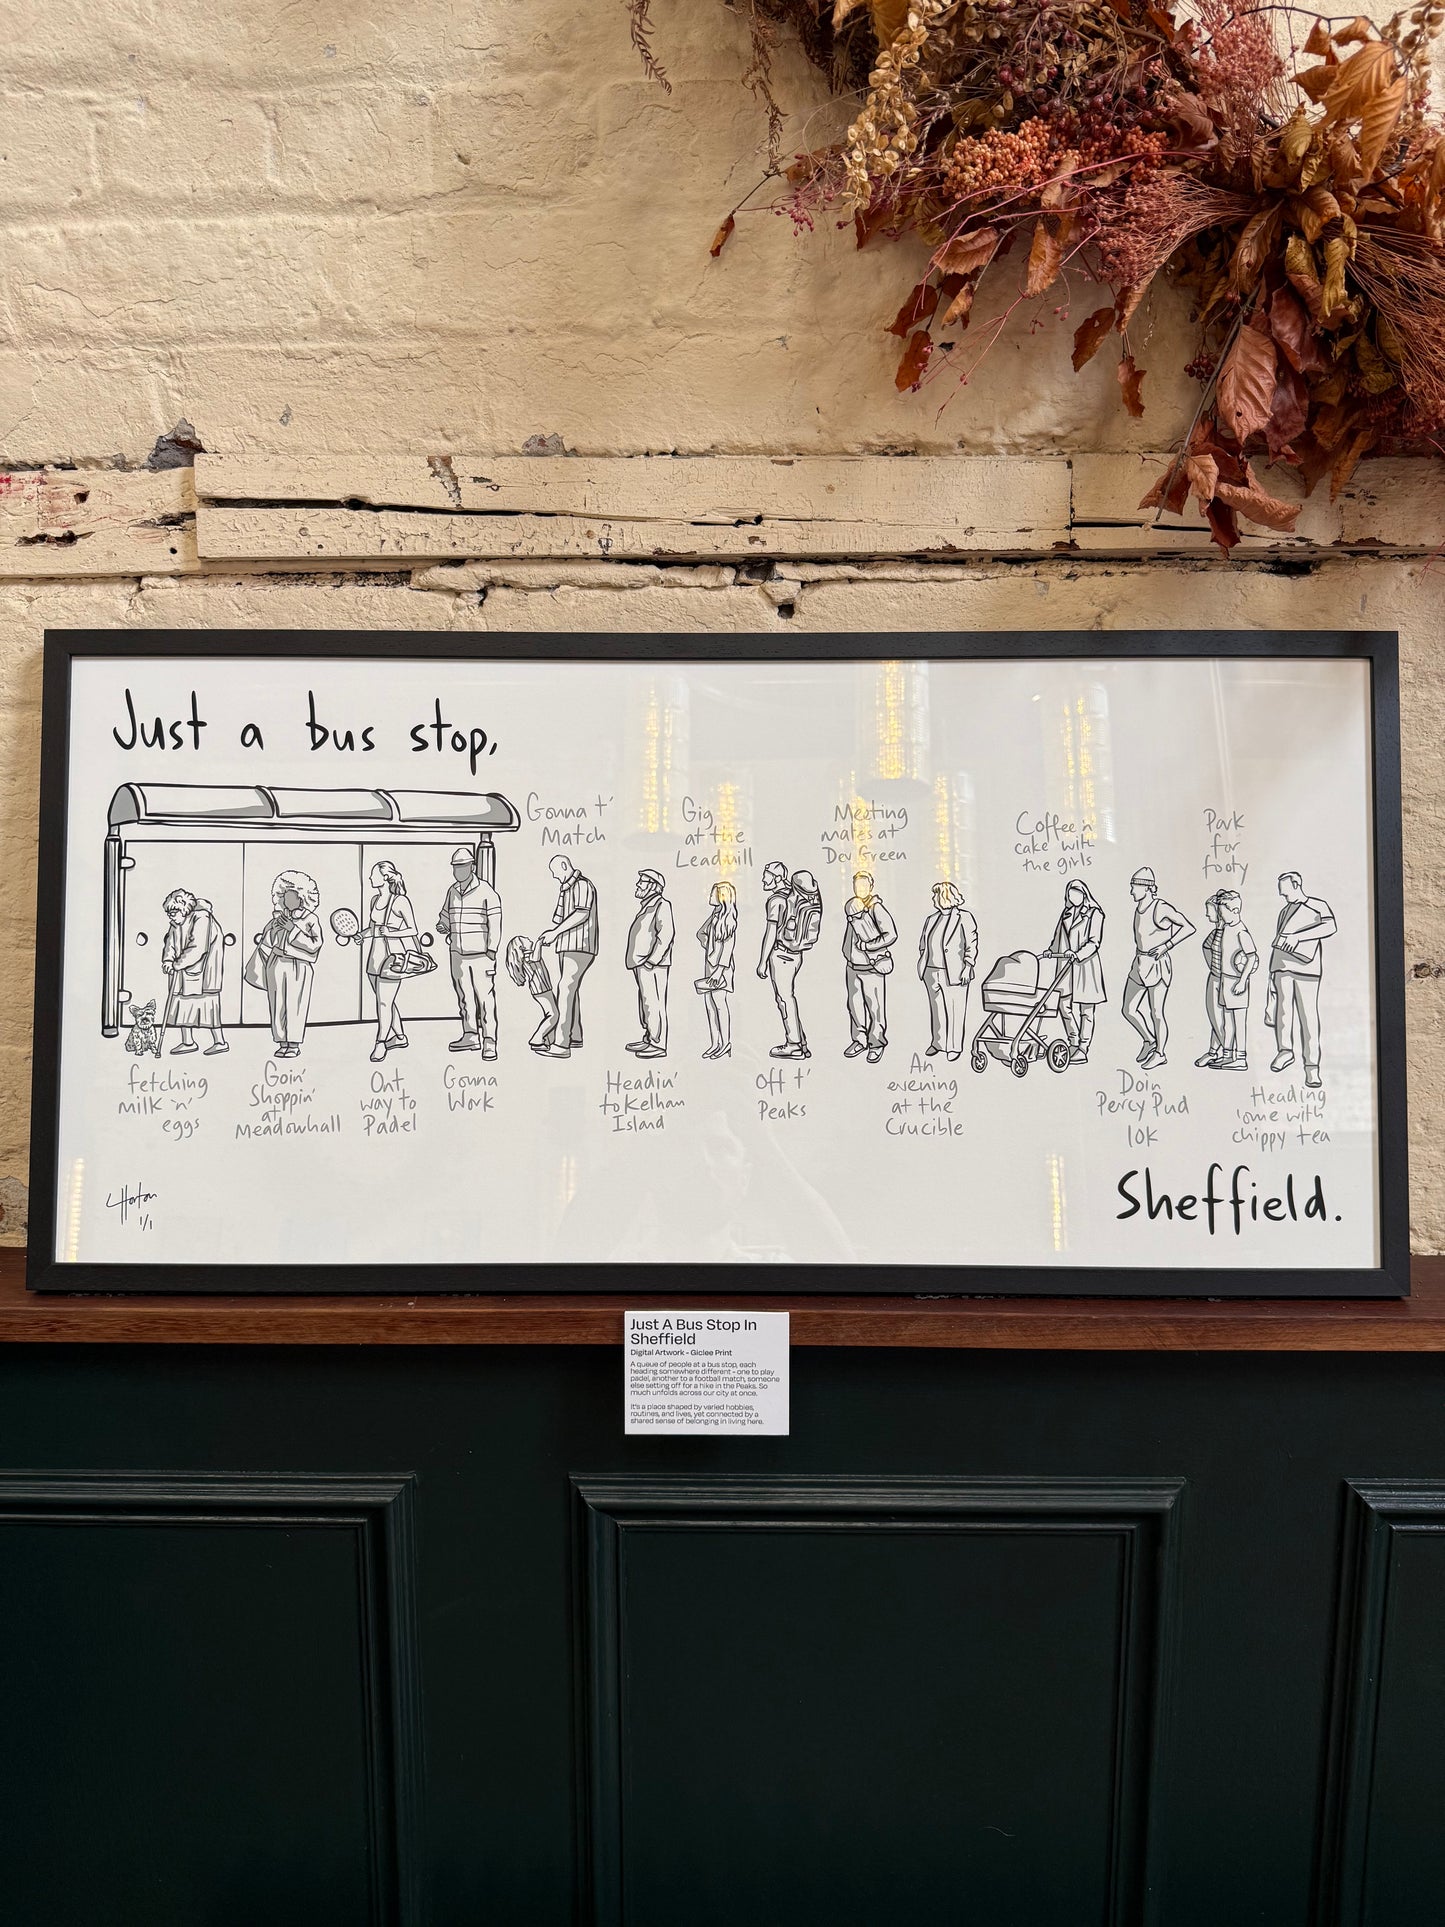 Just a bus stop,
Gonna t'
Match
Gig
at the
Leadmill
Meeting
mates at
Dev Green
Coffee 'n'
cake with
the girls
Park
for
footy
fetching
milk 'n'
eggs
Goin'
Shoppin'
at
Meadowhall
Ont
way to
Padel
Gonna
Work
Headin'
to Kelham
Island
Off t'
Peaks
An
evening
at the
Crucible
Doin
Percy Pud
10K
Heading
'ome with
chippy tea
Sheffield.
LHorton
1/1
Just A Bus Stop In
Sheffield
Digital Artwork - Giclee Print
A queue of people at a bus stop, each
heading somewhere different - one to play
padel, another to a football match, someone
else setting off for a hike in the Peaks. So
much unfolds across our city at once.
It's a place shaped by varied hobbies,
routines, and lives, yet connected by a
shared sense of belonging in living here.